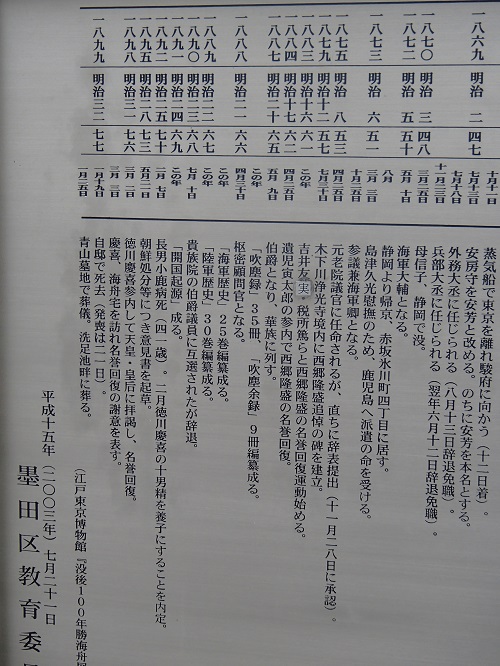 十月十一日 蒸気船で東京を離れ駿府に向かう（十二日着）。
一八六九 明治 二 四七 七月十三日 安房守を安芳と改める。のちに安芳を本名とする。
七月十八日 外務大丞に任じられる（八月十三日辞退免職）。
十一月二三日 兵部大丞に任じられる（翌年六月十二日辞退免職）。
一八七〇 明治 三 四八 三月二五日 母信子、静岡で没。
一八七二 明治 五 五十 五月 十日 海軍大輔となる。
八月 静岡より帰京、赤坂氷川町四丁目に居す。
一八七三 明治 六 五一 三月 三日 島津久光慰撫のため、鹿児島へ派遣の命を受ける。
十月二五日 参議兼海軍卿となる。
一八七五 明治 八 五三 四月二五日 元老院議官に任命されるが、直ちに辞表提出（十一月二八日に承認）。
一八七九 明治十二 五七 七月三十日 木下川浄光寺境内に西郷隆盛追悼の碑を建立。
一八八三 明治十六 六一 この年 吉井友実・税所篤らと西郷隆盛の名誉回復運動始める。
一八八四 明治十七 六二 遺児寅太郎の参内で西郷隆盛の名誉回復。
一八八七 明治二十 六五 五月 九日 伯爵となり、華族に列す。
この年 「吹塵録」35冊、「吹塵余録」9冊編纂成る。
一八八八 明治二一 六六 四月三十日 枢密顧問官となる。
一八八九 明治二二 六七 この年 「海軍歴史」25巻編纂成る。
この年 「陸軍歴史」30巻編纂成る。
一八九〇 明治二三 六八 七月 十日 貴族院の伯爵議員に互選されたが辞退。
一八九一 明治二四 六九 この年 「開国起源」成る。
一八九二 明治二五 七十 二月 七日 長男小鹿病死（四一歳）。二月徳川慶喜の十男精を養子にすることを内定。
一八九五 明治二八 七三 朝鮮処分等につき意見書を起草。
一八九八 明治三一 七六 三月 二日 徳川慶喜参内して天皇・皇后に拝謁し、名誉回復。
三月 三日 慶喜、海舟宅を訪れ名誉回復の謝意を表す。
一八九九 明治三二 七七 一月十九日 自邸で死去（発喪は二一日）。
一月二五日 青山墓地で葬儀。洗足池畔に葬る。
（江戸東京博物館『没後100年勝海舟展
平成十五年（二〇〇三年）七月二十一日
墨田区教育委員